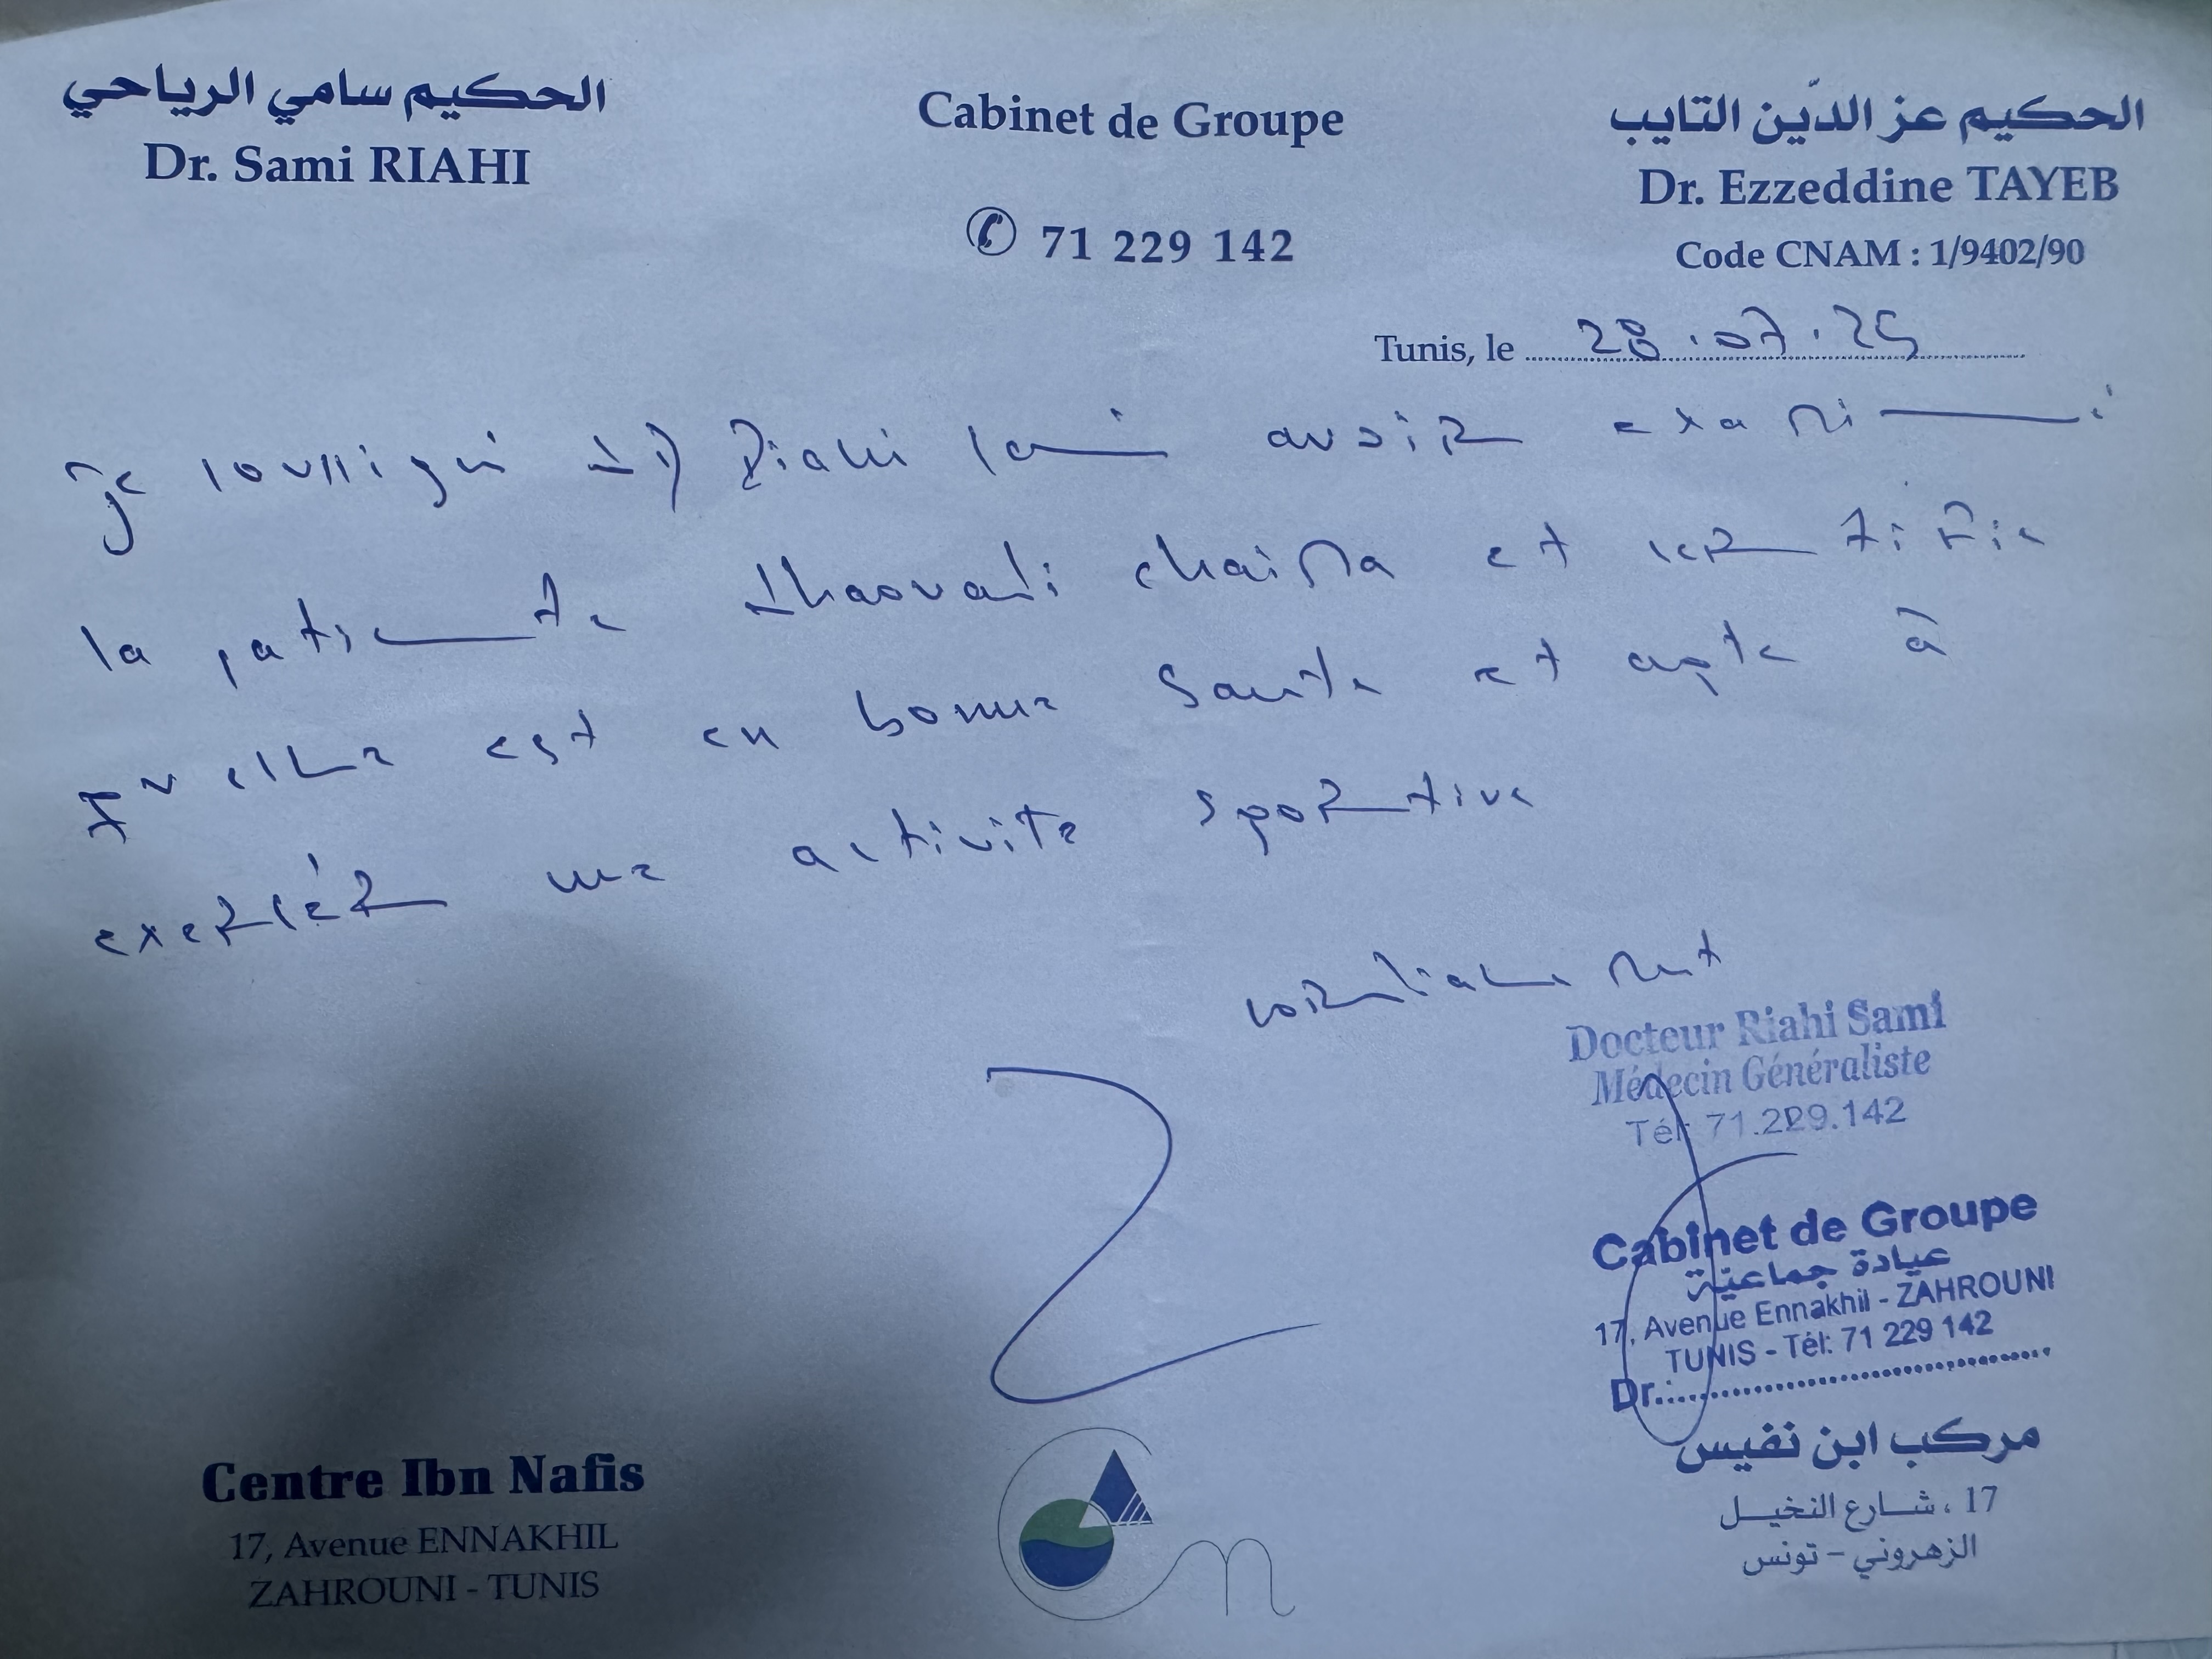 الحكيم سامي الرياحي
Dr. Sami RIAHI
Cabinet de Groupe
71 229 142
الحكيم عز الدّين التايب
Dr. Ezzeddine TAYEB
Code CNAM : 1/9402/90
Tunis, le 28.07.25
Je soussigné Dr Riahi Sami avoir examiné
la patiente chaima et certifie
qu'elle est en bonne Sante et apte à
exercér une activite sportive
cordialement
Docteur Riahi Sami
Médecin Généraliste
Tél: 71.229.142
Cabinet de Groupe
عيادة جماعية
17, Avenue Ennakhil - ZAHROUNI
TUNIS - Tél: 71 229 142
Dr.:
Centre Ibn Nafis
17, Avenue ENNAKHIL
ZAHROUNI - TUNIS
مركب ابن نفيس
17 ، شارع النخيل
الزهروني - تونس